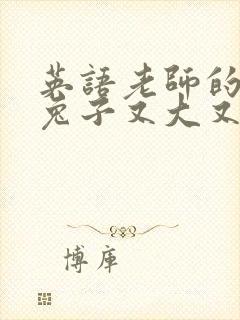 英語老師的
兔子又大又
博庫